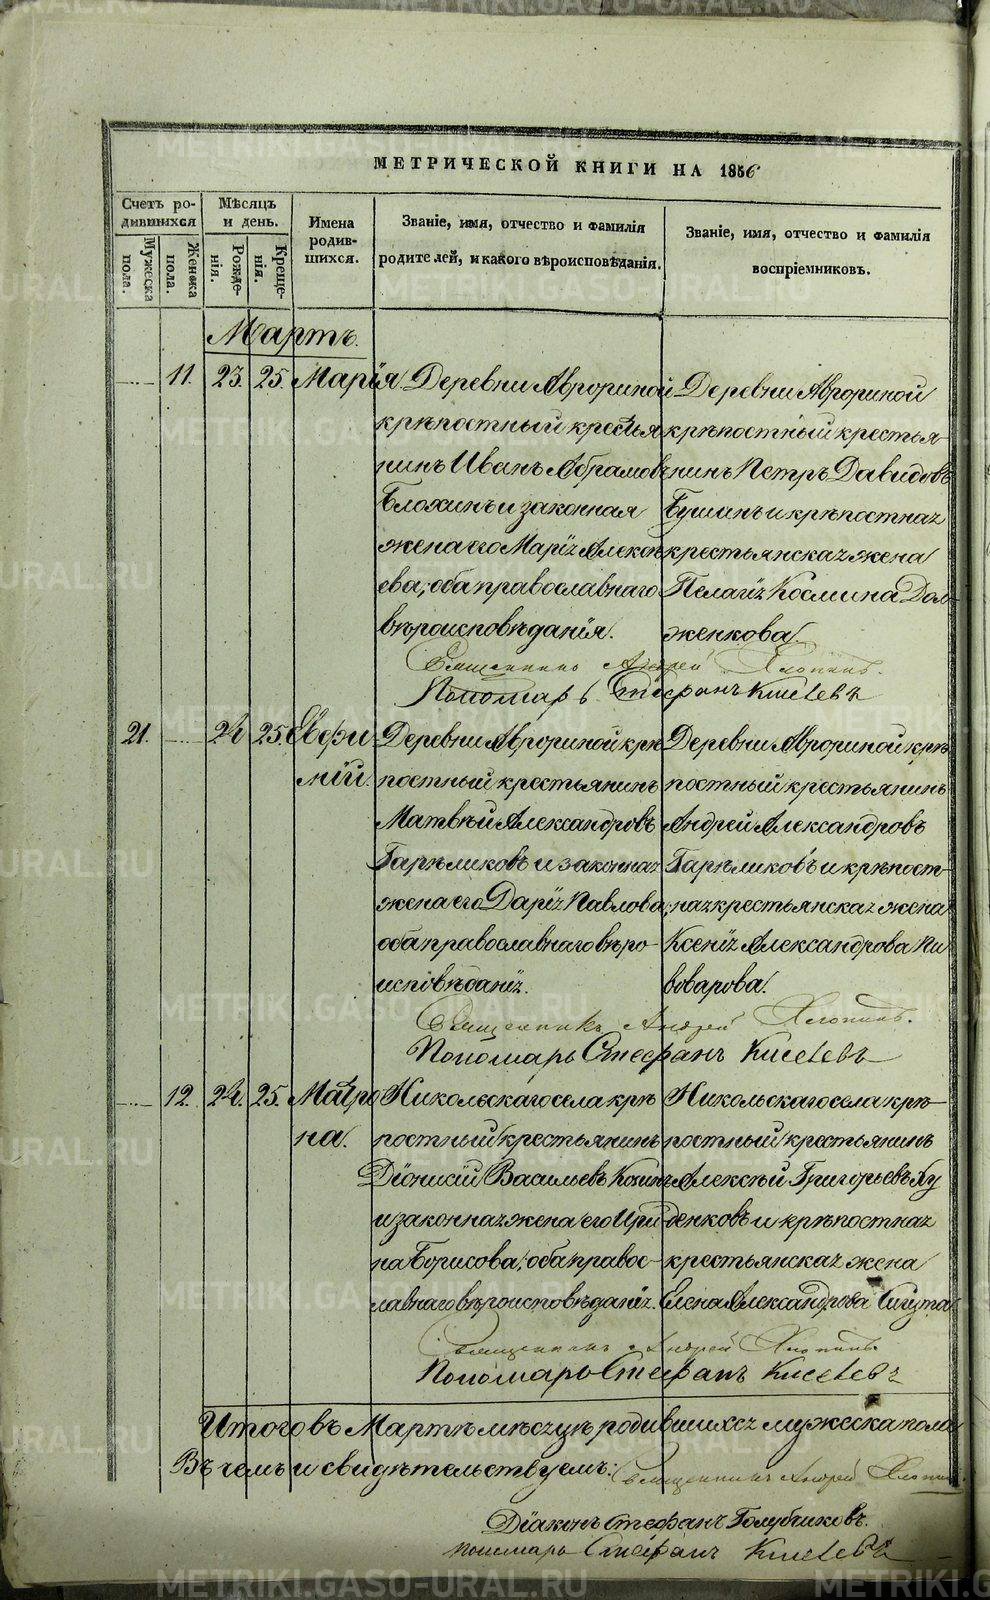 МЕТРИЧЕСКОЙ КНИГИ НА 1856
Счетъ ро-
дившихся
Мужеска
пола.
Женска
пола.
Мѣсяцъ
и день.
Рожде-
нія.
Креще-
нія.
Имена
родив-
шихся.
Званіе, имя, отчество и фамилія
родителей, и какого вѣроисповѣданія.
Званіе, имя, отчество и фамилія
воспріемниковъ.
Мартъ.
11. 23. 25. Марія
Деревни Аврориной
крѣпостный крестья
нинъ Иванъ Абрамовъ
Блохинъ и законная
жена его Марія Алексѣ
ева, оба православнаго
вѣроисповѣданія.
Деревни Аврориной
крѣпостный крестья-
нинъ Петръ Давидовъ
Бушинъ и крѣпостная
крестьянская жена
Пелагія Космина Дол-
женкова.
Священникъ Андрей Хлопинъ.
Пономарь Стефанъ Киселевъ
21. 24. 25. Евфи
мій.
Деревни Аврориной крѣ
постный крестьянинъ
Матвѣй Александровъ
Гарѣликовъ и законная
жена его Дарія Павлова,
оба православнаго вѣро-
исповѣданія.
Деревни Аврориной крѣ
постный крестьянинъ
Андрей Александровъ
Гарѣликовъ и крѣпост-
ная крестьянская жена
Ксенія Александрова Пи
воварова.
Священникъ Андрей Хлопинъ.
Пономарь Стефанъ Киселевъ
12. 24. 25. Матро
на.
Никольскаго села крѣ
постный крестьянинъ
Діонисій Васильевъ
и законная жена его Ири
на Борисова, оба правос-
лавнаго вѣроисповѣданія.
Никольскаго села крѣ-
постный крестьянинъ
Алексѣй Григорьевъ Ху
денковъ и крѣпостная
крестьянская жена
Елена Александрова
Священникъ Андрей Хлопинъ.
Пономарь Стефанъ Киселевъ
Итого въ Мартѣ мѣсяцѣ родившихся мужеска пола
Въ чемъ и свидѣтельствуемъ: Священникъ Андрей Хлопинъ.
Діаконъ Стефанъ Голубчиковъ.
пономарь Стефанъ Киселевъ
METRIKI.GASO-URAL.RU